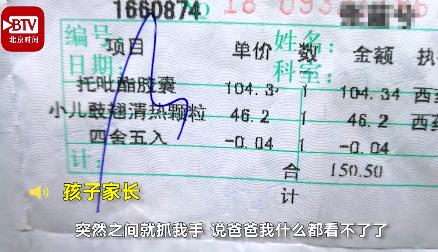 BTV
北京时间
1660874
NO 18 093
编号
项目
单价
数
姓名：
金额
执
日期：
科室：
托吡酯胶囊 104.3 1 104.34 西药
小儿鼓翘清热颗粒 46.2 1 46.2 西药
四舍五入 -0.04 1 -0.04
计：
合计 150.50
孩子家长
突然之间就抓我手 说爸爸我什么都看不了了